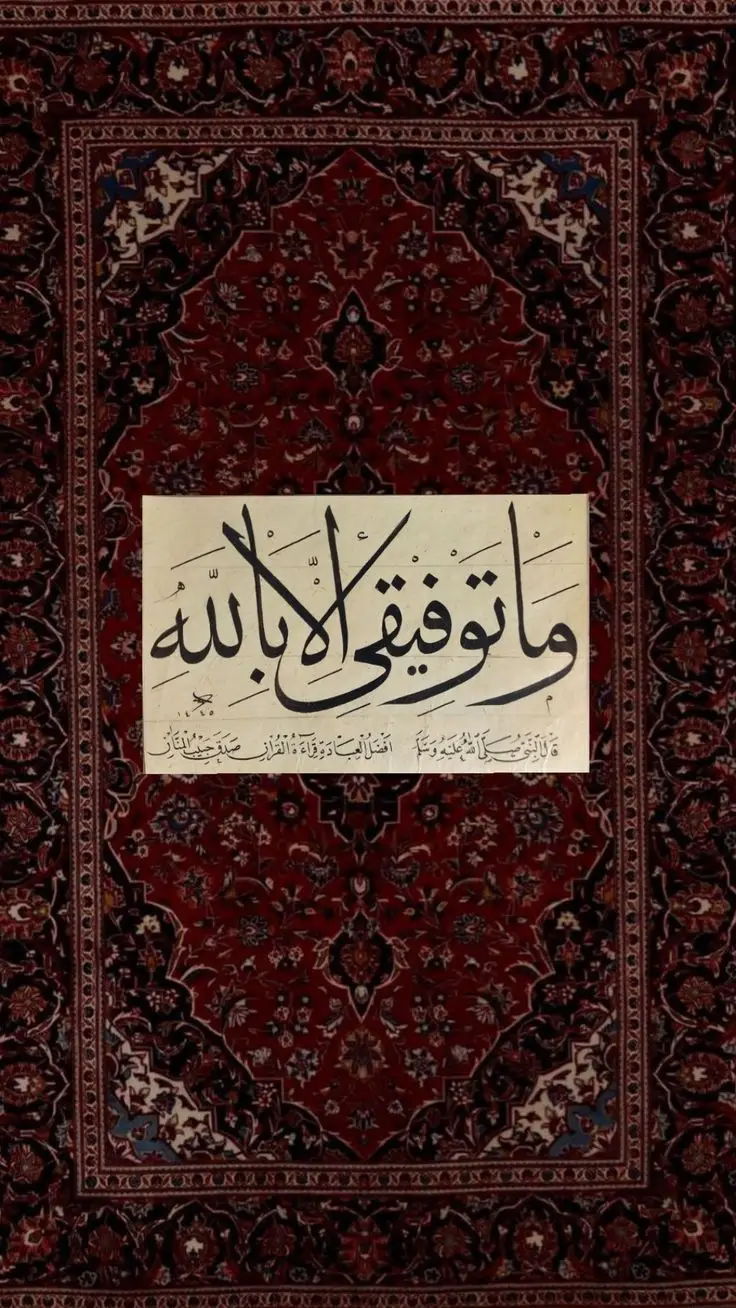 وَمَا تَوْفِيْقِى إِلَّا بِاللّٰهِ
١٤٤٥
قَالَ النَّبِيُّ صَلَّى اللّٰهُ عَلَيْهِ وَسَلَّمَ اَفْضَلُ الْعِبَادَةِ قِرَاءَةُ الْقُرْآنِ صَدَقَ حَبِيْبُ الْمَنَّانِ